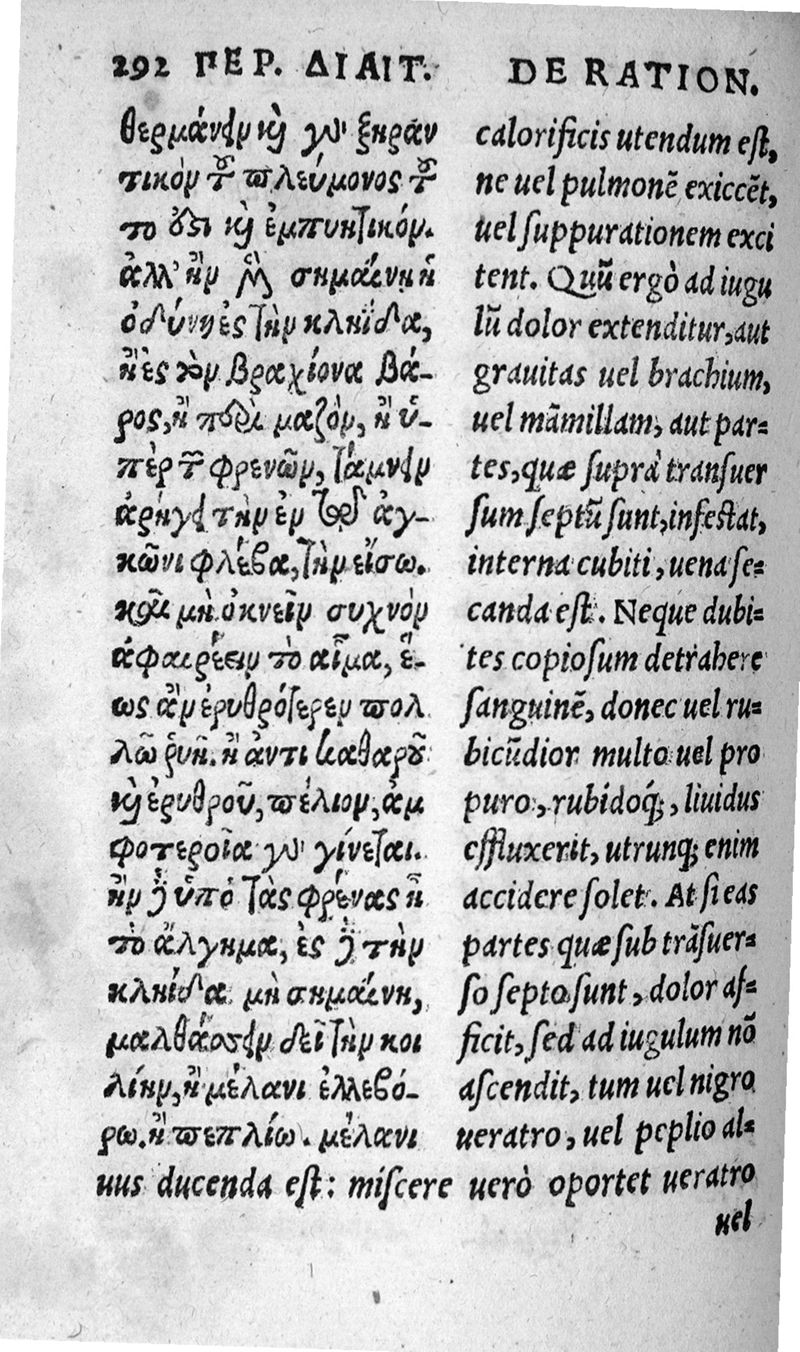 292 ΠΕΡ. ΔΙΑΙΤ.
θερμάνειν καὶ γὰρ ξηραν
τικὸν τοῦ πλεύμονος τοῦ
το δὲ καὶ ἐμπυητικόν.
ἀλλ' ἢν μὲν σημαίνῃ ἡ
ὀδύνη ἐς τὴν κληῖδα,
ἢ ἐς τὸν βραχίονα βά-
ρος, ἢ περὶ μαζὸν, ἢ ὑ-
πὲρ τῶν φρενῶν, τάμνειν
ἀρήγει τὴν ἐν τῷ ἀγ-
κῶνι φλέβα, τὴν εἴσω.
καὶ μὴ ὀκνεῖν συχνὸν
ἀφαιρέειν τὸ αἷμα, ἕ-
ως ἂν ἐρυθρότερον πολ
λῷ ῥυῇ. ἢ ἀντὶ καθαροῦ
καὶ ἐρυθροῦ, πέλιον, ἀμ
φοτεροῖα γὰρ γίνεται.
ἢν δὲ ὑπὸ τὰς φρένας ᾖ
τὸ ἄλγημα, ἐς δὲ τὴν
κληῖδα μὴ σημαίνῃ,
μαλθάσσειν δεῖ τὴν κοι
λίην, ἢ μέλανι ἐλλεβό-
ρῳ. ἢ πεπλίῳ. μέλανι
DE RATION.
calorificis utendum est,
ne uel pulmonē exiccēt,
uel suppurationem exci
tent. Quū ergò ad iugu
lū dolor extenditur, aut
grauitas uel brachium,
uel māmillam, aut par=
tes, quæ suprà transuer
sum septū sunt, infestat,
interna cubiti, uena se=
canda est. Neque dubi=
tes copiosum detrahere
sanguinē, donec uel ru=
bicūdior multo uel pro
puro, rubidoq́;, liuidus
effluxerit, utrunq; enim
accidere solet. At si eas
partes quæ sub trāsuer=
so septo sunt, dolor af=
ficit, sed ad iugulum nō
ascendit, tum uel nigro
ueratro, uel peplio al=
uus ducenda est: miscere uerò oportet ueratro
uel